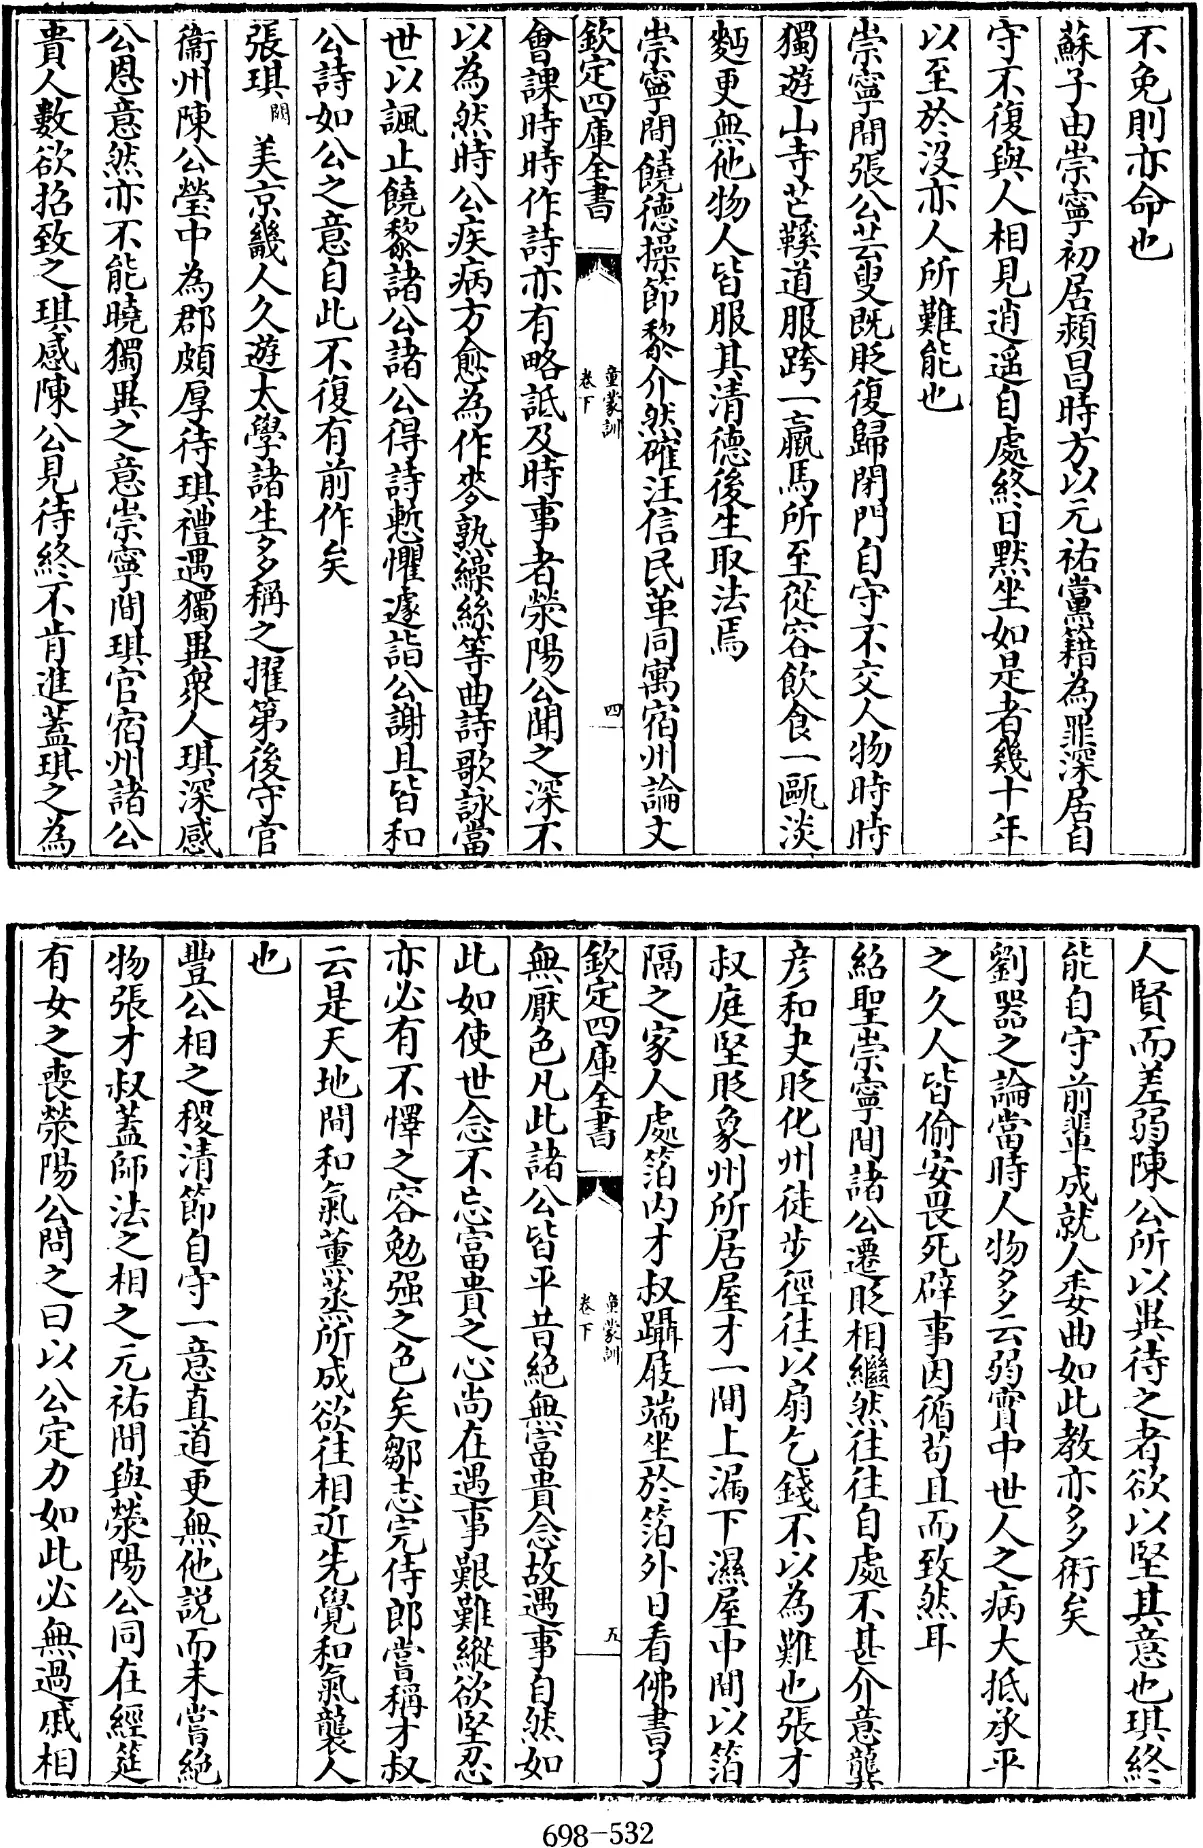 不免則亦命也
蘇子由崇寧初居潁昌時方以元祐黨籍為罪深居自
守不復與人相見逍遥自處終日黙坐如是者幾十年
以至於沒亦人所難能也
崇寧間張公芸叟既貶復歸閉門自守不交人物時時
獨遊山寺芒鞵道服跨一羸馬所至從容飲食一甌淡
麪更無他物人皆服其清德後生取法焉
崇寧間饒德操節黎介然確汪信民革同寓宿州論文
欽定四庫全書
童蒙訓
卷下
四
會課時時作詩亦有略詆及時事者滎陽公聞之深不
以為然時公疾病方愈為作麥孰繰絲等曲詩歌詠當
世以諷止饒黎諸公諸公得詩慙懼遽詣公謝且皆和
公詩如公之意自此不復有前作矣
張琪闕美京畿人久遊太學諸生多稱之擢第後守官
衞州陳公瑩中為郡頗厚待琪禮遇獨異衆人琪深感
公恩意然亦不能曉獨異之意崇寧間琪官宿州諸公
貴人數欲招致之琪感陳公見待終不肯進蓋琪之為
人賢而差弱陳公所以異待之者欲以堅其意也琪終
能自守前輩成就人委曲如此教亦多術矣
劉器之論當時人物多云弱實中世人之病大抵承平
之久人皆偷安畏死辟事因循苟且而致然耳
紹聖崇寧間諸公遷貶相繼然往往自處不甚介意龔
彦和夬貶化州徒步徑往以扇乞錢不以為難也張才
叔庭堅貶象州所居屋才一間上漏下濕屋中間以箔
隔之家人處箔内才叔躡屐端坐於箔外日看佛書了
欽定四庫全書
童蒙訓
卷下
五
無厭色凡此諸公皆平昔絶無富貴念故遇事自然如
此如使世念不忘富貴之心尚在遇事艱難縱欲堅忍
亦必有不懌之容勉强之色矣鄒志完侍郎嘗稱才叔
云是天地間和氣薰蒸所成欲往相近先覺和氣襲人
也
豐公相之稷清節自守一意直道更無他説而未嘗絶
物張才叔蓋師法之相之元祐間與滎陽公同在經筵
有女之喪滎陽公問之曰以公定力如此必無過戚相
698-532